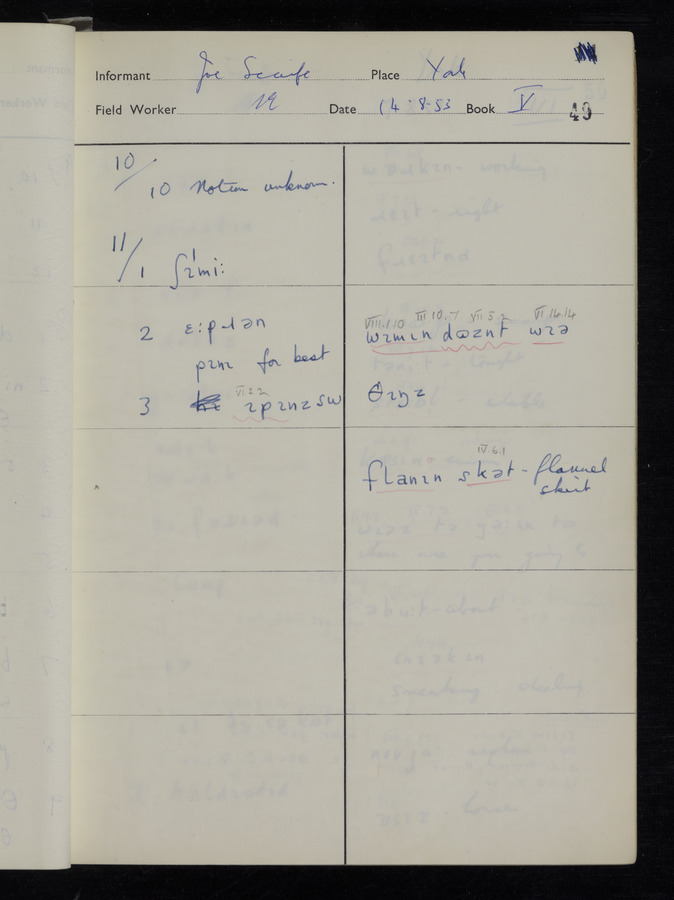 Informant Joe Scaife Place York
Field Worker Date 14-8-53 Book V 49
10/10 Notion unknown.
11/1 ʃɪˈmiː
2 ɛːpɹən
pɪnɪ for best
VI.2.2
3 ɪpɪnz sw
VIII.1.10 III 10.7 VII 5.2 VI 14.14
wɪmɪn dɶznt wɪə
θɪŋz
IV.6.1
flanɪn skət - flannel
skirt